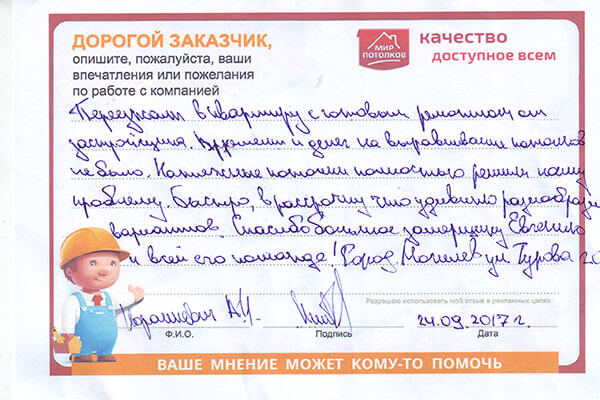 ДОРОГОЙ ЗАКАЗЧИК,
опишите, пожалуйста, ваши
впечатления или пожелания
по работе с компанией
МИР
ПОТОЛКОВ
качество
доступное всем
Переезжали в квартиру с готовым ремонтом от
застройщика. Времени и денег на выравнивание потолков
не было. Натяжные потолки полностью решили нашу
проблему. Быстро, в рассрочку что удивило разнообразие
вариантов. Спасибо большое замерщику Евгению
и всей его команде! Город Могилев ул. Турова
Разрешаю использовать мой отзыв в рекламных целях
А.И.
24.09.2017 г.
Ф.И.О.
Подпись
Дата
ВАШЕ МНЕНИЕ МОЖЕТ КОМУ-ТО ПОМОЧЬ